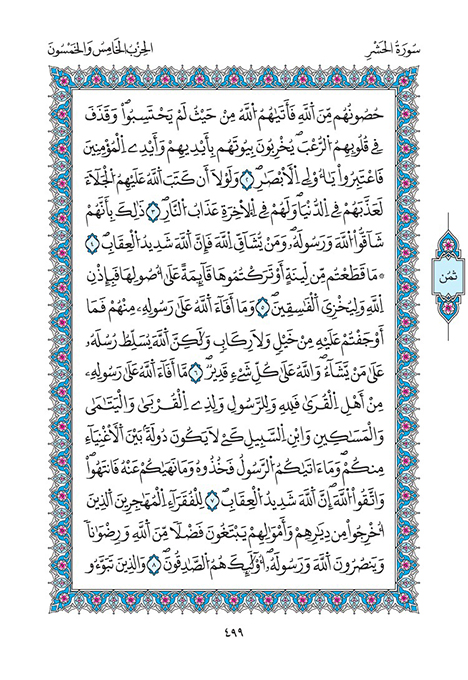 سُورَةُ الحَشْرِ
الحِزْبُ الخَامِسُ وَالخَمْسُونَ
حُصُونُهُم مِّنَ اَ۬للَّهِ فَأَتَيٰهُمُ اُ۬للَّهُ مِنْ حَيْثُ لَمْ يَحْتَسِبُواْۖ وَقَذَفَ
فِے قُلُوبِهِمُ اُ۬لرُّعْبَۖ يُخْرِبُونَ بِيُوتَهُم بِأَيْدِيهِمْ وَأَيْدِے اِ۬لْمُؤْمِنِينَ
فَاعْتَبِرُواْ يَٰٓأُوْلِے اِ۬لْأَبْصَٰرِۖ ٢ وَلَوْلَآ أَن كَتَبَ اَ۬للَّهُ عَلَيْهِمُ اُ۬لْجَلَآءَ
لَعَذَّبَهُمْ فِے اِ۬لدُّنْيَاۖ وَلَهُمْ فِے اِ۬لْأٓخِرَةِ عَذَابُ اُ۬لنَّارِۖ ٣ ذَٰلِكَ بِأَنَّهُمْ
شَآقُّواْ اُ۬للَّهَ وَرَسُولَهُۥۖ وَمَنْ يُّشَآقِّ اِ۬للَّهَ فَإِنَّ اَ۬للَّهَ شَدِيدُ اُ۬لْعِقَابِۖ ٤
* مَا قَطَعْتُم مِّن لِّينَةٍ أَوْ تَرَكْتُمُوهَا قَآئِمَةً عَلَىٰٓ أُصُولِهَا فَبِإِذْنِ
اِ۬للَّهِ وَلِيُخْزِيَ اَ۬لْفَٰسِقِينَۖ ٥ وَمَآ أَفَآءَ اَ۬للَّهُ عَلَىٰ رَسُولِهِۦ مِنْهُمْ فَمَآ
أَوْجَفْتُمْ عَلَيْهِ مِنْ خَيْلٍ وَلَا رِكَابٍ وَلَٰكِنَّ اَ۬للَّهَ يُسَلِّطُ رُسُلَهُۥ
عَلَىٰ مَنْ يَّشَآءُۖ وَاللَّهُ عَلَىٰ كُلِّ شَےْءٖ قَدِيرٌۖ ٦ مَّآ أَفَآءَ اَ۬للَّهُ عَلَىٰ رَسُولِهِۦ
مِنْ أَهْلِ اِ۬لْقُرَىٰ فَلِلهِ وَلِلرَّسُولِ وَلِذِے اِ۬لْقُرْبَىٰ وَالْيَتَٰمَىٰ
وَالْمَسَٰكِينِ وَابْنِ اِ۬لسَّبِيلِ كَےْ لَا يَكُونَ دُولَةَۢ بَيْنَ اَ۬لْأَغْنِيَآءِ
مِنكُمْۖ وَمَآ ءَاتَيٰكُمُ اُ۬لرَّسُولُ فَخُذُوهُ وَمَا نَهَيٰكُمْ عَنْهُ فَانتَهُواْۖ
وَاتَّقُواْ اُ۬للَّهَۖ إِنَّ اَ۬للَّهَ شَدِيدُ اُ۬لْعِقَابِۖ ٧ لِلْفُقَرَآءِ اِ۬لْمُهَٰجِرِينَ اَ۬لذِينَ
أُخْرِجُواْ مِن دِيٰرِهِمْ وَأَمْوَٰلِهِمْ يَبْتَغُونَ فَضْلًا مِّنَ اَ۬للَّهِ وَرِضْوَٰناً
وَيَنصُرُونَ اَ۬للَّهَ وَرَسُولَهُۥۖ أُوْلَٰٓئِكَ هُمُ اُ۬لصَّٰدِقُونَۖ ٨ وَالذِينَ تَبَوَّءُو
ثُمُن
٤٩٩